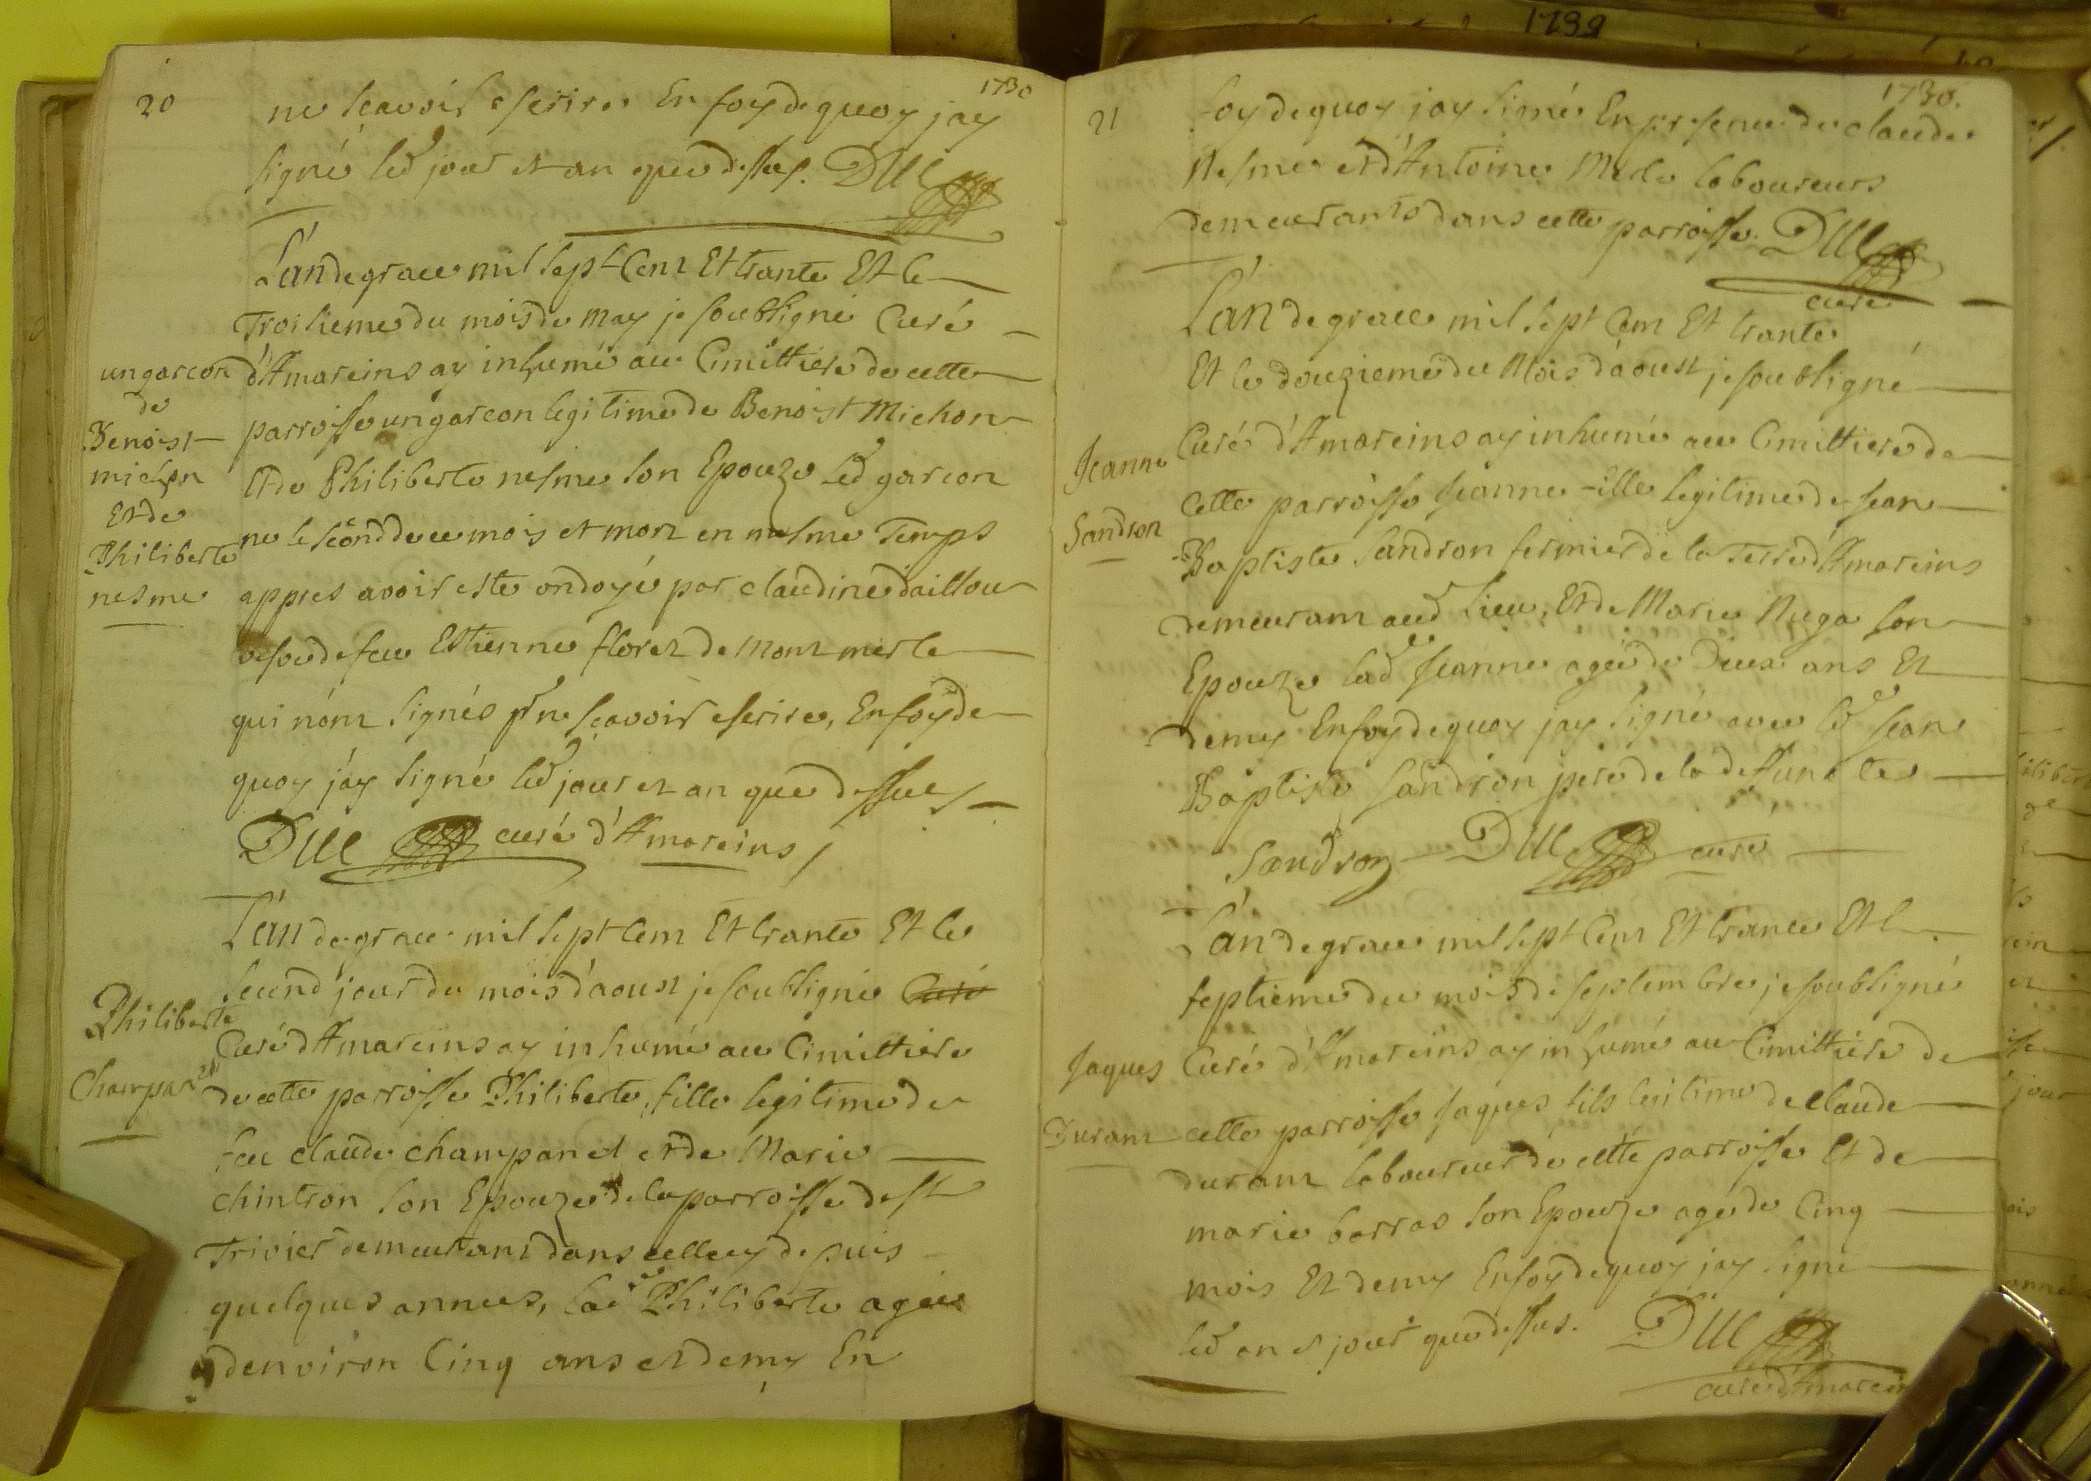 1739
20
1730
ne scavoir escrire En foy de quoy jay
signé led jour et an que dessus. DUC
L'an de grace mil sept Cent Et trante Et le
Troisieme du mois de may je soubsigné Curé
d'Amareins ay inhumé au Cimittiere de cette
parroisse un garcon legitime de Benoist Michon
Et de Philiberte nesme son Epouze led garcon
ne le second de ce mois et mort en mesme Temps
appres avoir este ondoyé par claudine daillou
vefve de feu Estienne floret de mont merle
qui n'ont signés pr ne scavoir escrire, En foy de
quoy j'ay signé led jour et an que dessus
DUC curé d'Amareins
un garcon
de
Benoist
michon
Et de
Philiberte
nesme
L'an de grace mil sept Cent Et trante Et le
second jour du mois d'aoust je soubsigné Curé
Curé d'Amareins ay inhumé au Cimittiere
de cette parroisse Philiberte, fille legitime de
feu claude champanet et de Marie
chintron son Epouze de la parroisse de st
Trivier demeurant dans celle cy depuis
quelques annees, lad Philiberte agée
denviron Cinq ans et demy En
Philiberte
Champanet
21
1730.
foy de quoy jay signé En presence de claude
Nesme et d'Antoine Merle laboureurs
demeurants dans cette parroisse. DUC
curé
L'an de grace mil sept Cent Et trante
Et le douzieme du Mois d'aoust, je soubsigné
Curé d'Amareins ay inhumé au Cimittiere de
cette parroisse Jeanne fille legitime de Jean
Baptiste Sandron fermier de la Terre d'Amareins
demeurant aud Lieu, Et de Marie Nuga son
Epouze lad Jeanne agée de Deux ans Et
demy En foy de quoy jay signé avec led Jean
Baptiste Sandron pere de la deffuncte
Sandron DUC curé
Jeanne
Sandron
L'an de grace mil sept Cent Et trante Et le
septieme du mois de septembre je soubsigné
Curé d'Amareins ay inhumé au Cimittiere de
cette parroisse Jaques fils legitime de claude
durant laboureur de cette parroisse Et de
marie barras son Epouze agé de Cinq
mois Et demy En foy de quoy jay signé
led an et jour que dessus. DUC
curé d'Amareins
Jaques
Durant